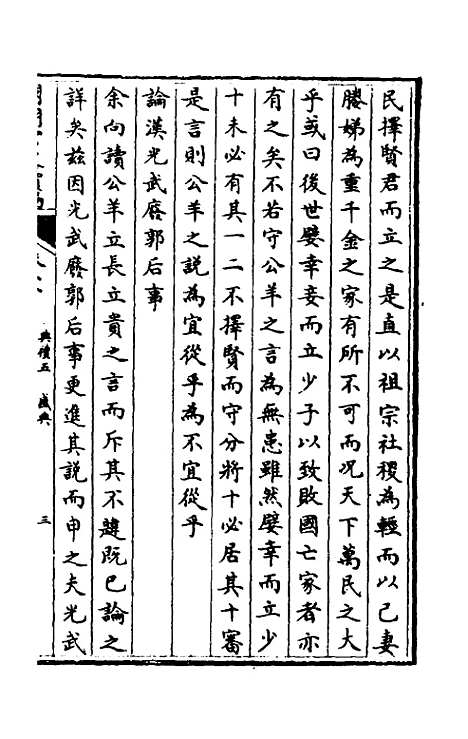 民擇賢君而立之是直以祖宗社稷為輕而以己妻
媵娣為重千金之家有所不可而况天下萬民之大
乎或曰後世嬖幸妾而立少子以致敗國亡家者亦
有之矣不若守公羊之言為無患雖然嬖幸而立少
十未必有其一二不擇賢而守分將十必居其十審
是言則公羊之説為宜從乎為不宜從乎
論漢光武廢郭后事
余向讀公羊立長立貴之言而斥其不韙既已論之
詳矣兹因光武廢郭后事更進其説而申之夫光武
典禮五
盛典
三